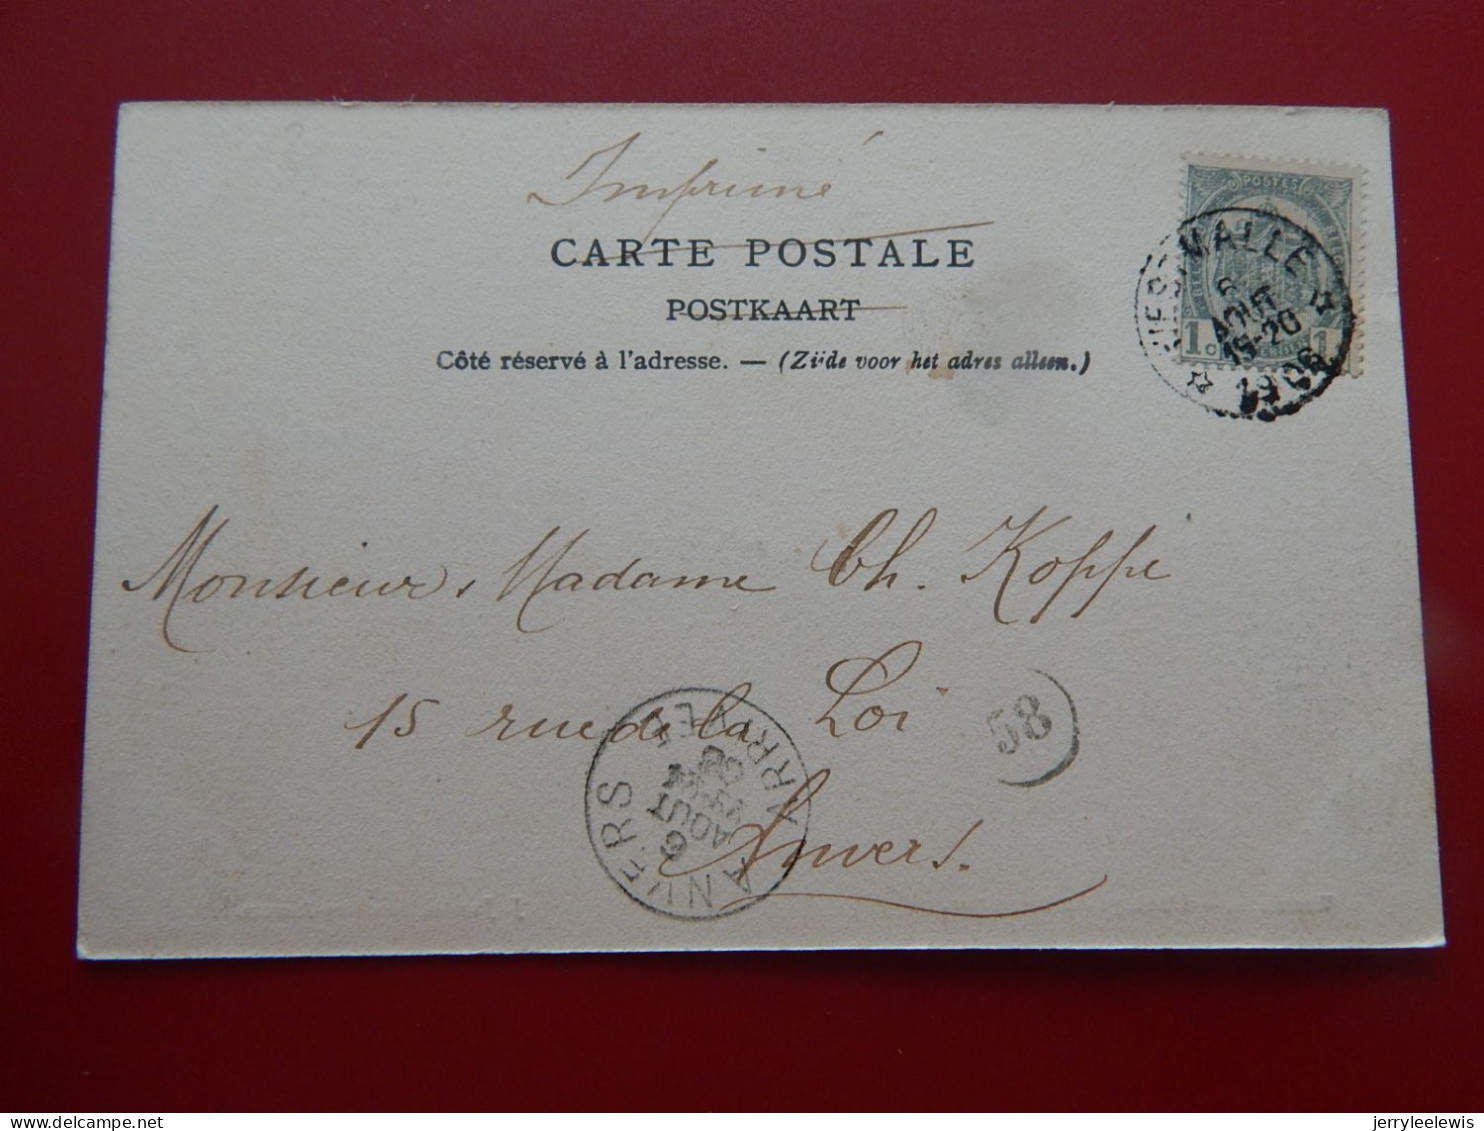 Imprimé
CARTE POSTALE
POSTKAART
Côté réservé à l'adresse. — (Zijde voor het adres alleen.)
POSTES
1 1
WESTMALLE
6
AOUT
15-20
1906
Monsieur, Madame Ch. Koppe
15 rue de la Loi
58
Anvers.
ANVERS ARRIVEE
6
AOUT
delcampe.net
jerryleelewis